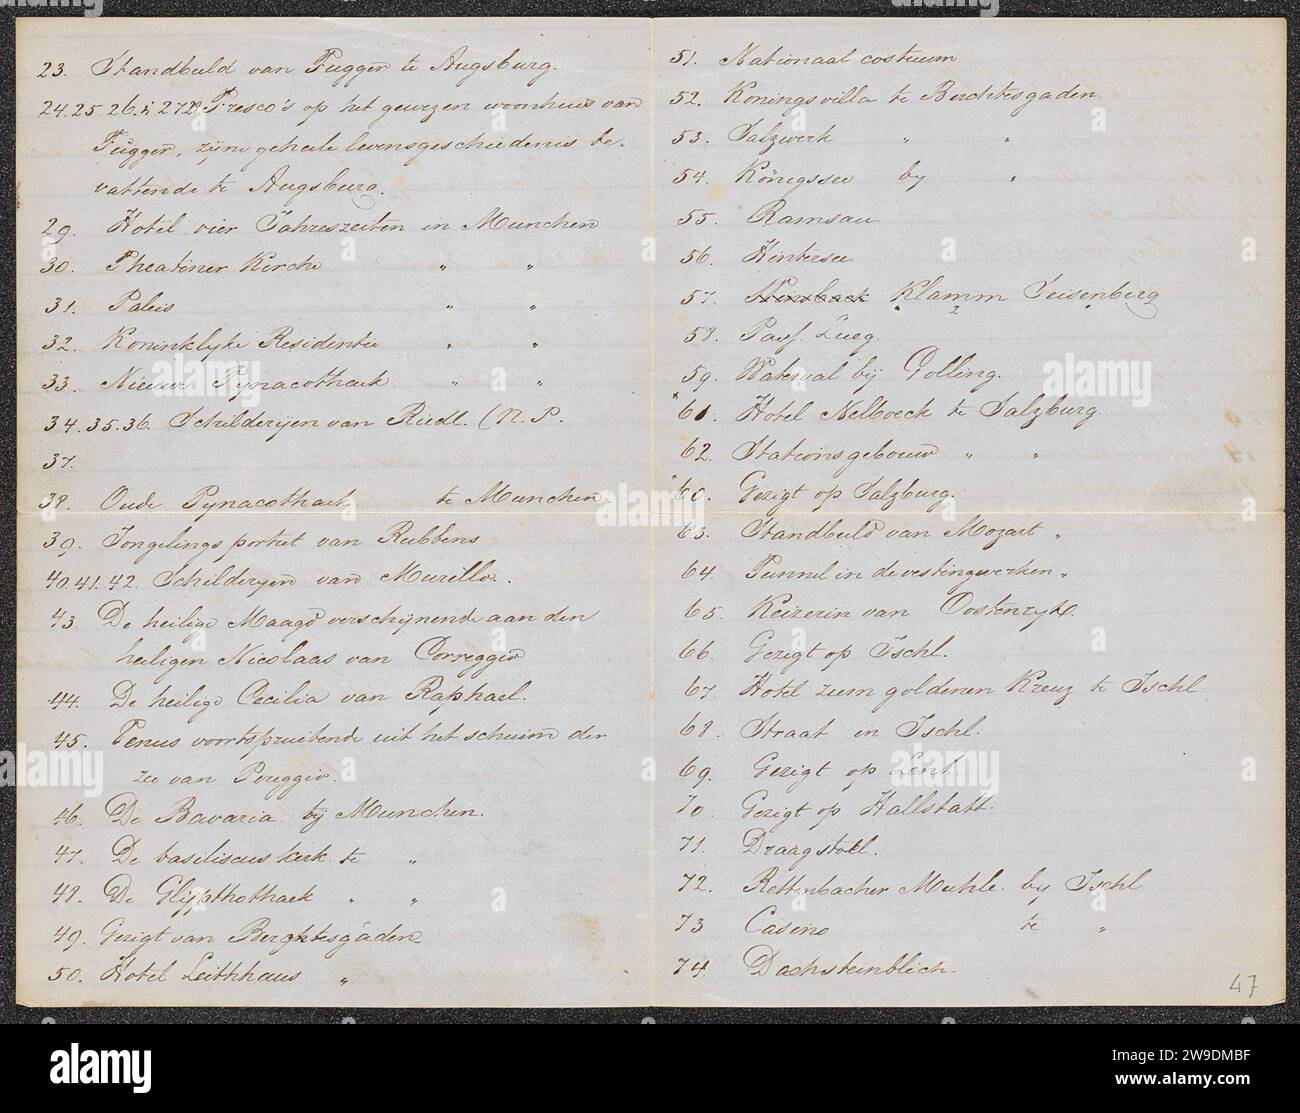 23. Standbeeld van Fugger te Augsburg.
24. 25. 26. 27 Fresco's op het gewezen woonhuis van
Fugger, zijne geheele levensgeschiedenis be-
vattende te Augsburg.
29. Hotel vier Jahreszeiten in Munchen
30. Theatiner Kirche " "
31. Paleis " "
32. Koninklyke Residentie " "
33. Nieuwe Pynacotheek " "
34. 35. 36. Schilderijen van Riedl. (N. P.
37.
38. Oude Pynacotheek te Munchen
39. Jongelings portret van Rubbens
40. 41. 42. Schilderyen van Murillo.
43. De heilige Maagd verschijnende aan den
heiligen Nicolaas van Correggio
44. De heilige Cecilia van Raphael.
45. Venus voortspruitende uit het schuim der
zee van Pereggio.
46. De Bavaria bij Munchen.
47. De basiliscus kerk te "
48. De Glijpthotheek " "
49. Gezigt van Berchtesgaden
50. Hotel Leithhaus "
51. Nationaal costuum
52. Koningsvilla te Berchtesgaden
53. Salzwerk " "
54. Königssee by "
55. Ramsau
56. Hintersee
57. Klamm Teisenberg
2
58. Pass Lueg.
59. Waterval bij Golling.
"61. Hotel Nelboeck te Salzburg.
62. Stationsgebouw " "
"60. Gezigt op Salzburg.
63. Standbeeld van Mozart "
64. Tunnel in de vestingwerken "
65. Keizerin van Oostenryk.
66. Gezigt op Ischl.
67. Hotel zum goldenen Kreuz te Ischl
68. Straat in Ischl.
69. Gezigt op Lent.
70. Gezigt op Hallstatt.
71. Draagstoel.
72. Rettenbacher Muhle by Ischl
73 Casino te "
74. Dachsteinblick.
47
alamy
Image ID: 2W9DMBF
www.alamy.com